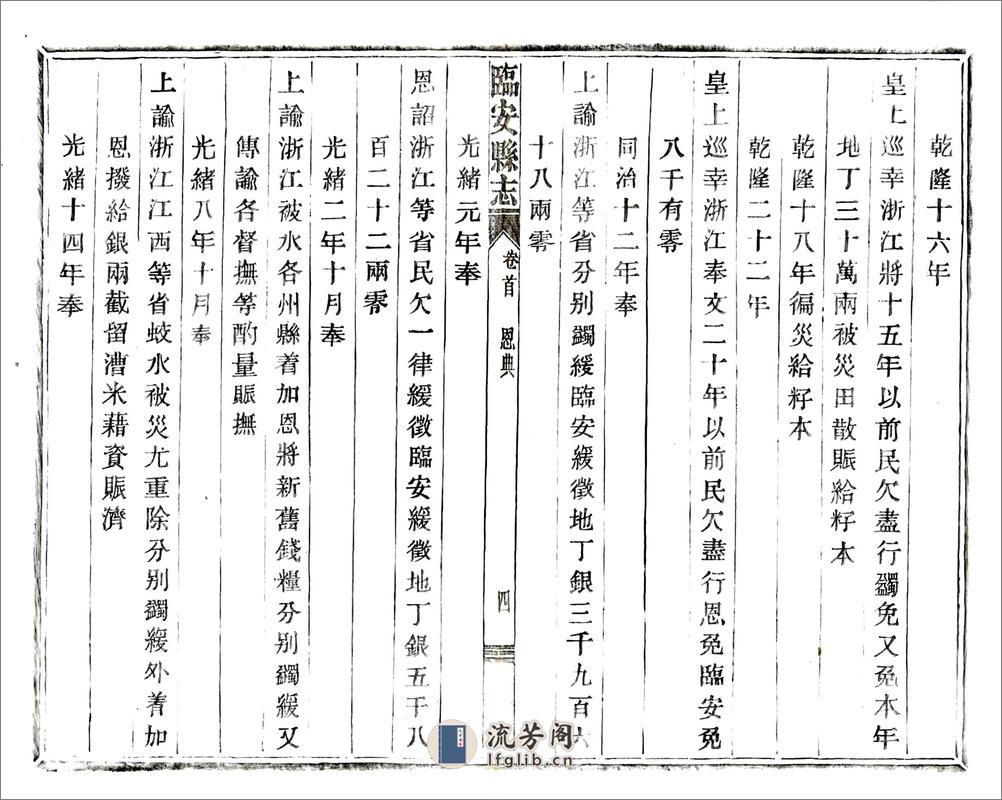 乾隆十六年
皇上巡幸浙江將十五年以前民欠盡行蠲免又免本年
地丁三十萬兩被災田散賑給籽本
乾隆十八年徧災給籽本
乾隆二十二年
皇上巡幸浙江奉文二十年以前民欠盡行恩免臨安免
八千有零
同治十二年奉
上諭浙江等省分別蠲緩臨安緩徵地丁銀三千九百六
十八兩零
光緒元年奉
恩詔浙江等省民欠一律緩徵臨安緩徵地丁銀五千八
百二十二兩零
光緒二年十月奉
上諭浙江被水各州縣着加恩將新舊錢糧分別蠲緩又
傳諭各督撫等酌量賑撫
光緒八年十月奉
上諭浙江江西等省蛟水被災尤重除分別蠲緩外着加
恩撥給銀兩截留漕米藉資賑濟
光緒十四年奉
臨安縣志 卷首 恩典 四
流芳阁
lfglib.cn